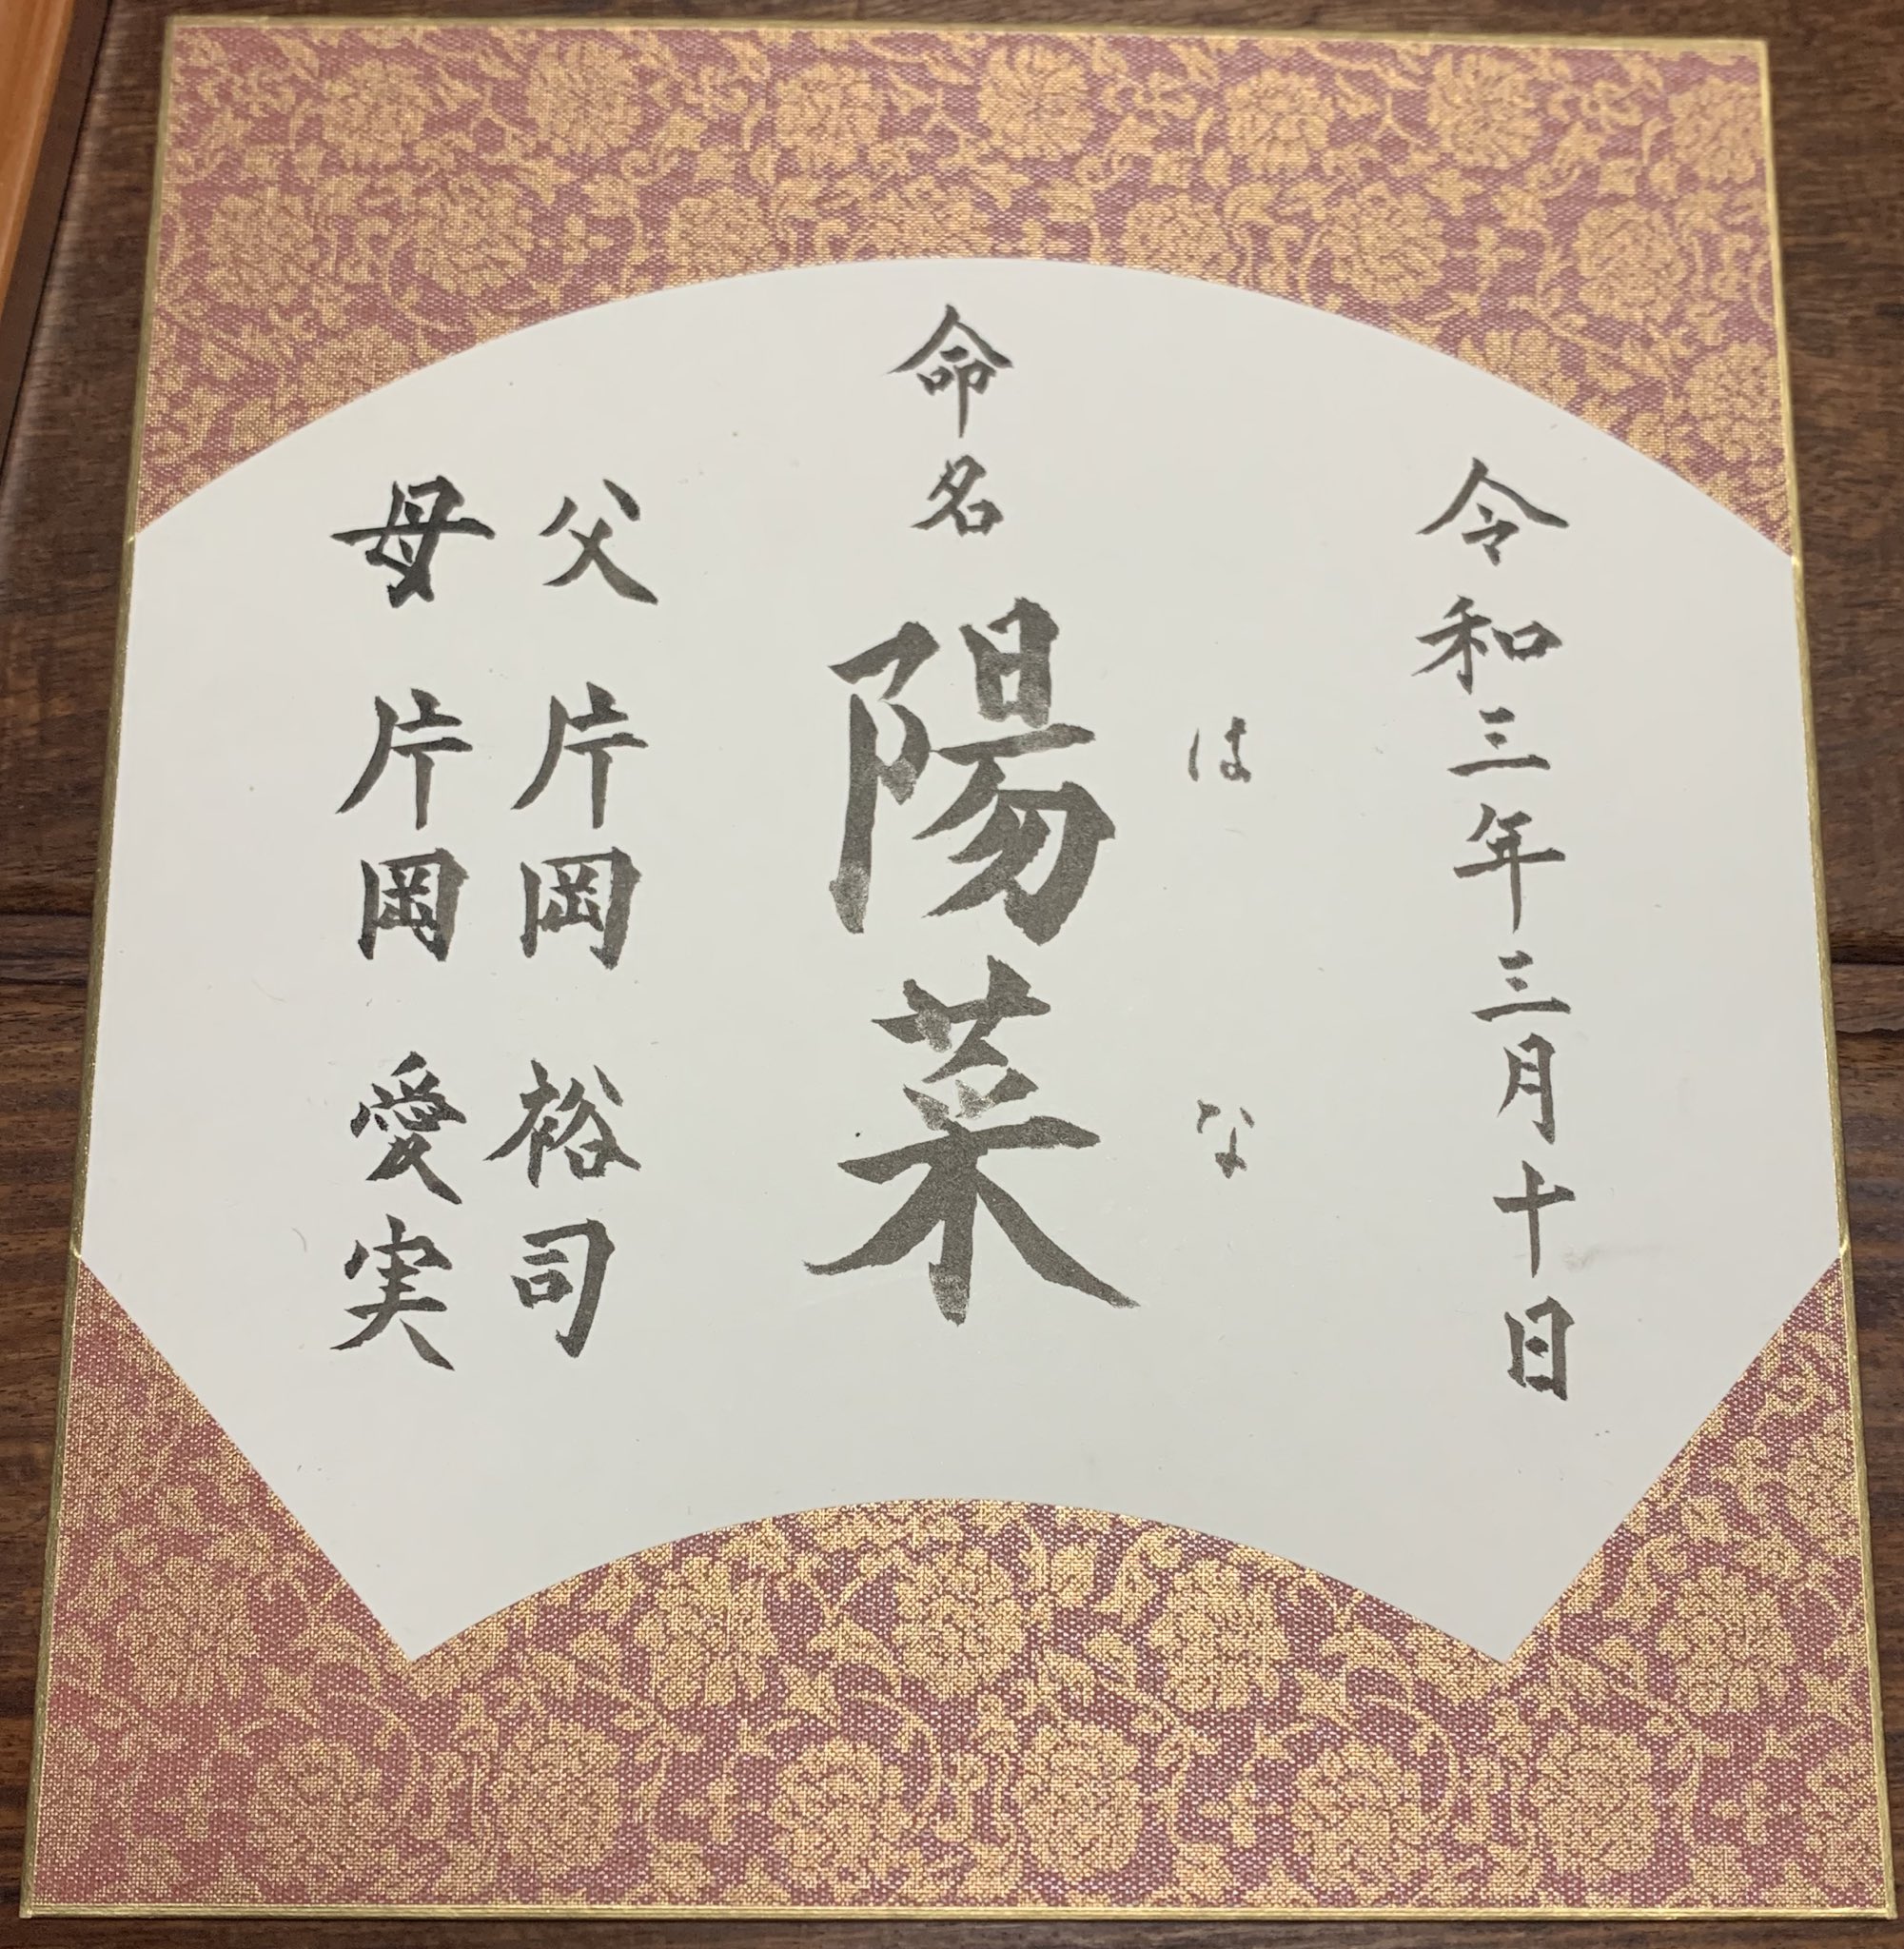 令和三年三月十日
はな
命名 陽菜
父 片岡 裕司
母 片岡 愛実